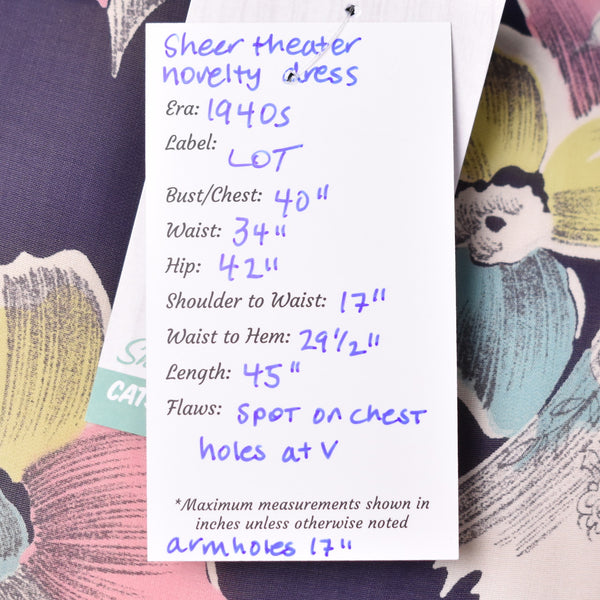 Sheer theater
novelty dress
Era: 1940s
Label: LOT
Bust/Chest: 40"
Waist: 34"
Hip: 42"
Shoulder to Waist: 17"
Waist to Hem: 29 1/2"
Length: 45"
Flaws: Spot on chest
holes at V
*Maximum measurements shown in
inches unless otherwise noted
armholes 17"